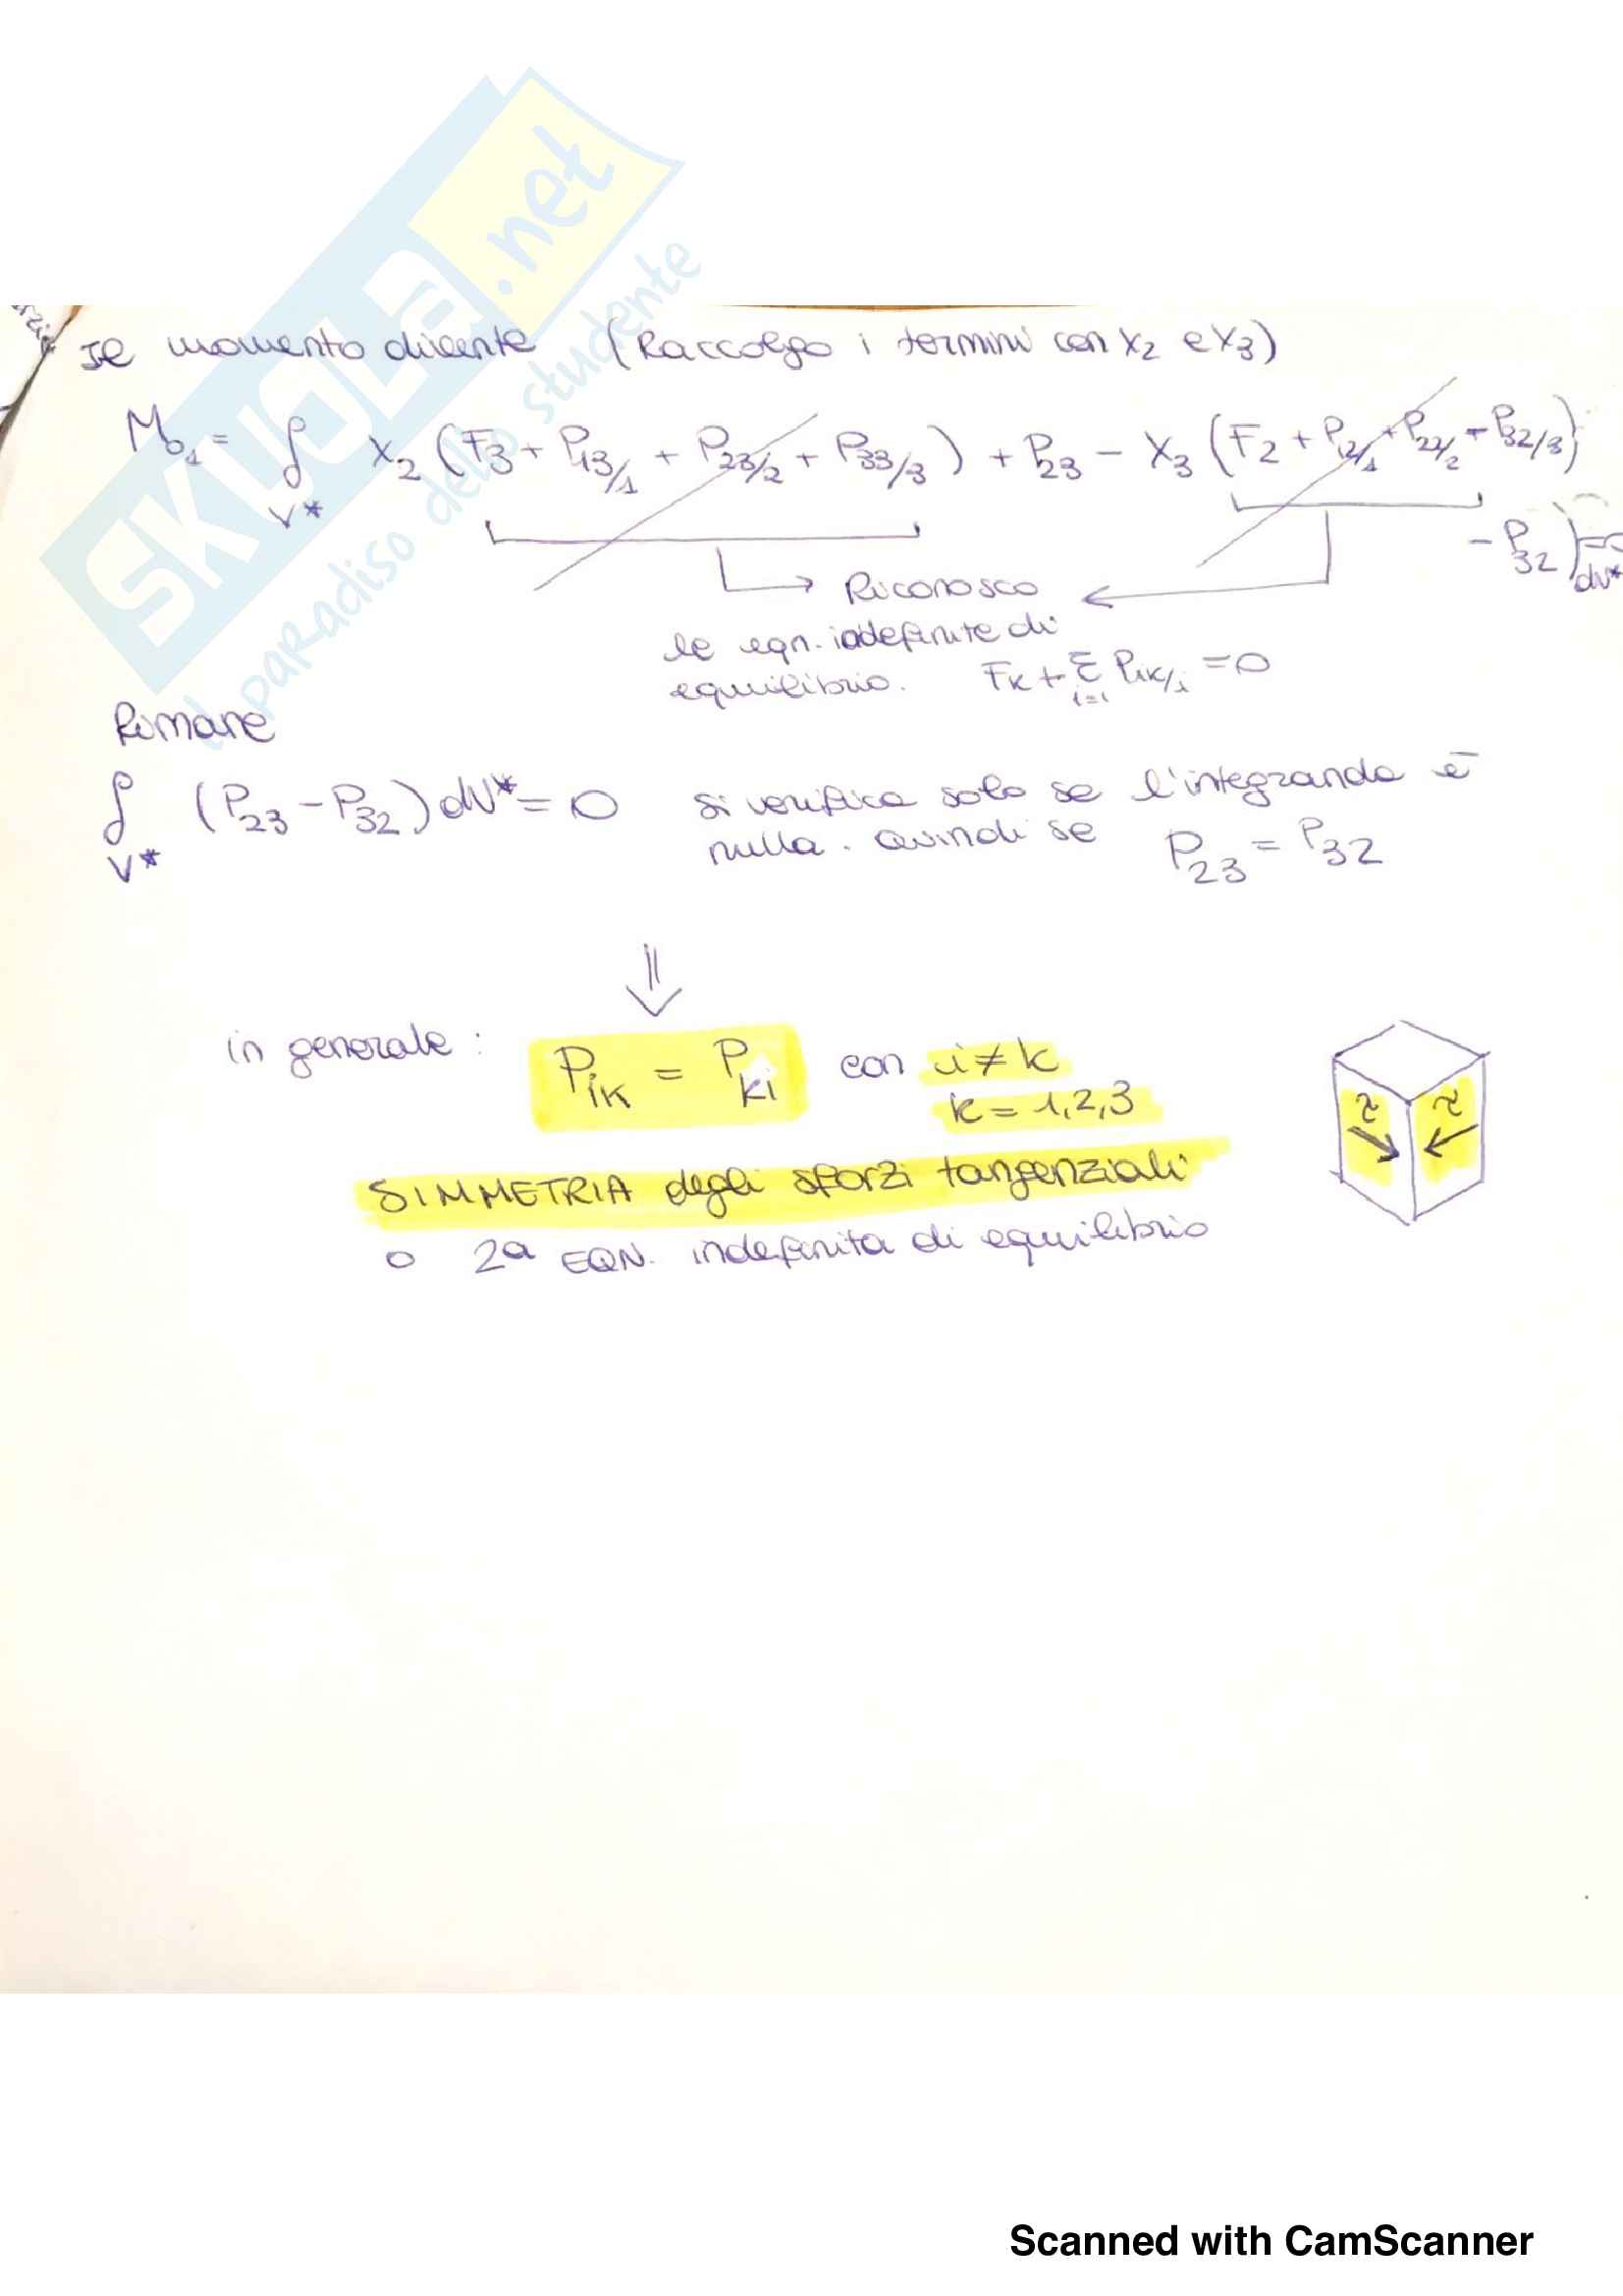 SKUOLA.net
il paradiso dello studente
Il momento diventa (Raccolgo i termini con x2 e x3)
Mo1 = ∫V* x2 (F3 + P13/1 + P23/2 + P33/3) + P23 - x3 (F2 + P12/1 + P22/2 + P32/3)
- P32) dV*
Riconosco
le eqn. indefinite di
equilibrio. Fk + Σ i=1 Pik/i = 0
Rimane
∫V* (P23 - P32) dV* = 0 si verifica solo se l'integranda è
nulla. Quindi se P23 = P32
⇓
in generale: Pik = Pki con i ≠ k
k = 1,2,3
τ τ
SIMMETRIA degli sforzi tangenziali
o 2a EQN. indefinita di equilibrio
Scanned with CamScanner